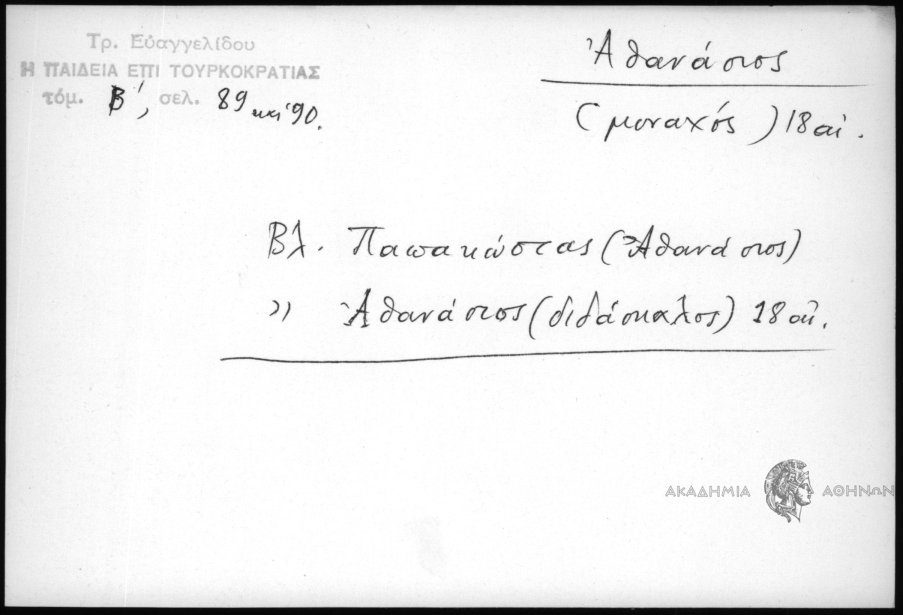 Τρ. Εὐαγγελίδου
Η ΠΑΙΔΕΙΑ ΕΠΙ ΤΟΥΡΚΟΚΡΑΤΙΑΣ
τόμ. Β΄, σελ. 89 και 90.
Ἀθανάσιος
(μοναχός) 18 αἰ.
Βλ. Παπακώστας (Ἀθανάσιος)
〃 Ἀθανάσιος (διδάσκαλος) 18 αἰ.
ΑΚΑΔΗΜΙΑ ΑΘΗΝΩΝ